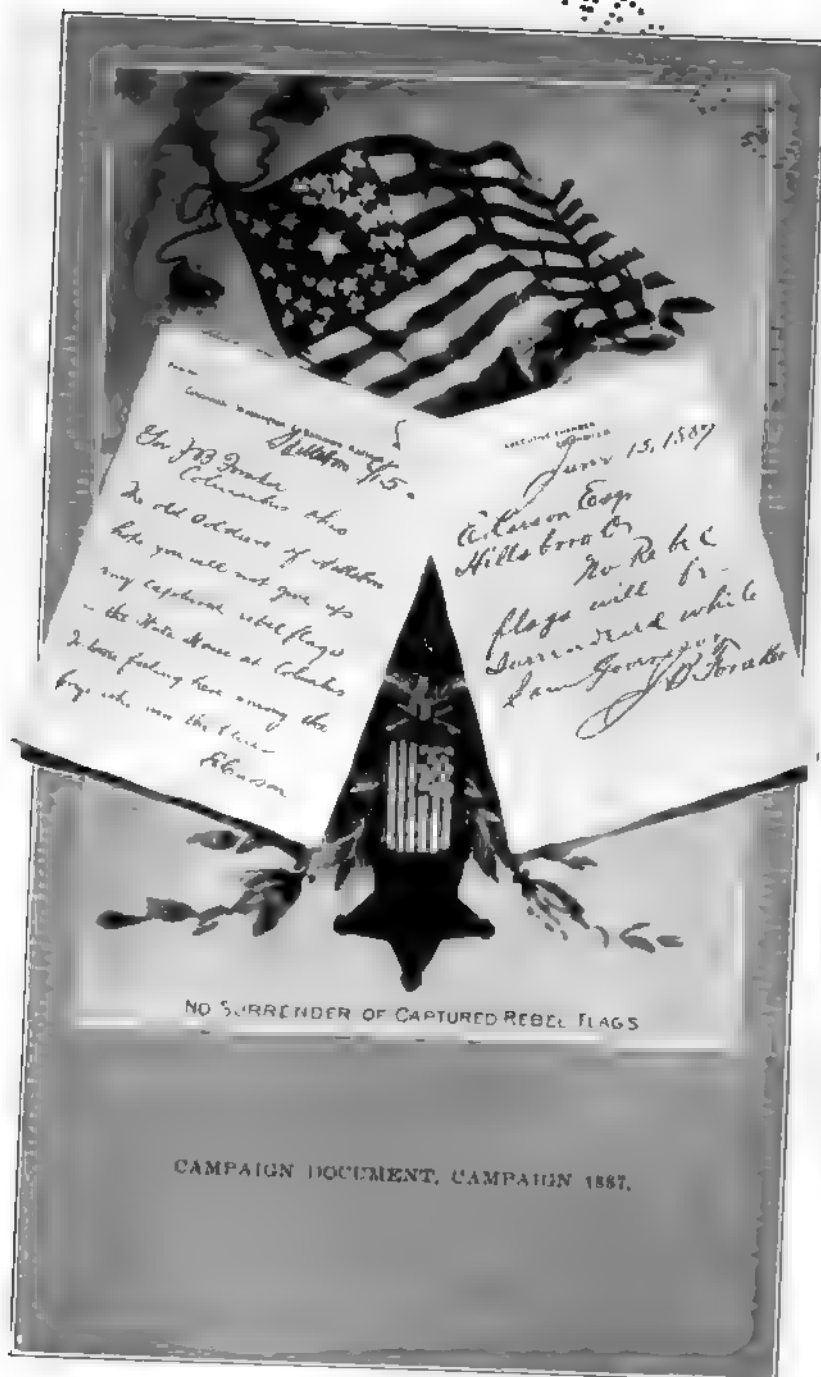 Hillsboro 6/15.
Gov J B Foraker
Columbus Ohio
The old Soldiers of Hillsboro
hope you will not give up
any captured rebel flags
in the State House at Columbus
feeling here among the
boys who won the
E Carson
EXECUTIVE CHAMBER
COLUMBUS
June 15, 1887
E Carson Esq
Hillsboro O
No Rebel
flags will be
surrendered while
I am Governor
J B Foraker
NO SURRENDER OF CAPTURED REBEL FLAGS
CAMPAIGN DOCUMENT, CAMPAIGN 1887.